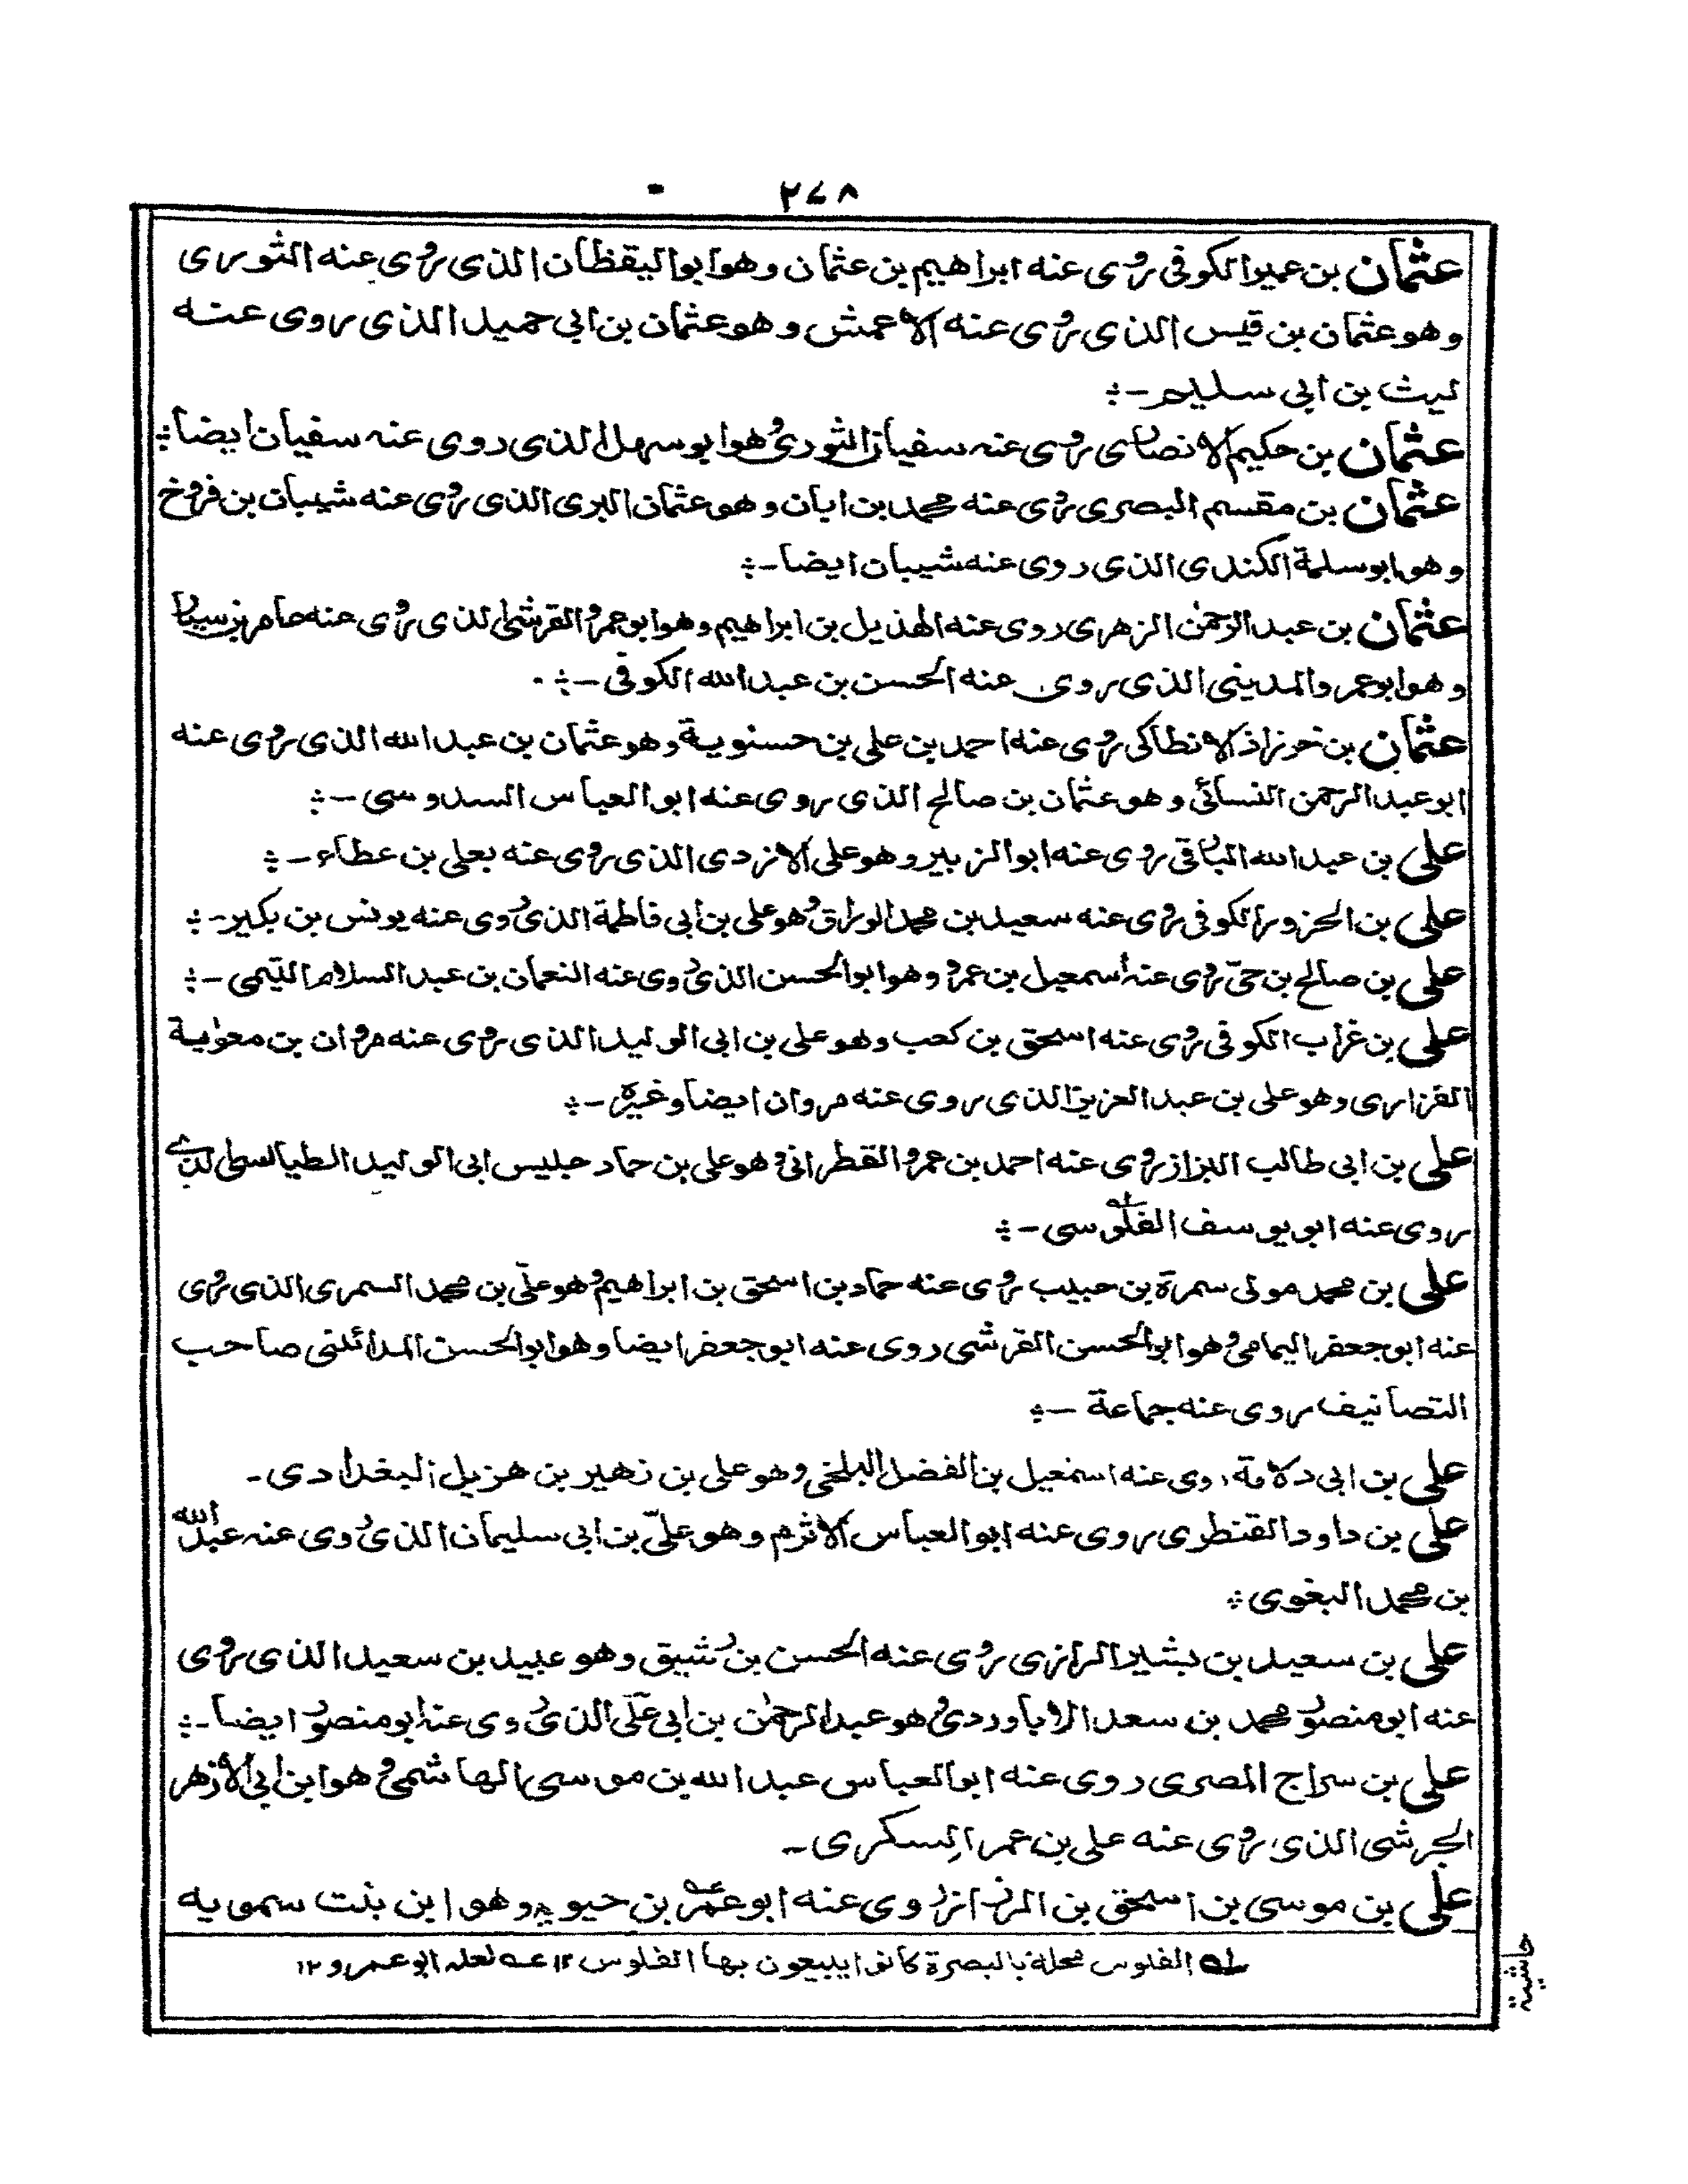 ۲۷۸
عثمان بن عمير الكوفى روى عنه ابراهيم بن عثمان وهو ابو اليقظان الذى روى عنه الثورى
وهو عثمان بن قيس الذى روى عنه الاعمش وهو عثمان بن ابى حميد الذى روى عنه
ليث بن ابى سليم -
عثمان بن حكيم الانصارى روى عنه سفيان الثورى وهو ابو سهل الذى روى عنه سفيان ايضا
عثمان بن مقسم البصرى روى عنه محمد بن ابان وهو عثمان البرى الذى روى عنه شيبان بن فروخ
وهو ابو سلمة الكندى الذى روى عنه شيبان ايضا -
عثمان بن عبد الرحمٰن الزهرى روى عنه الهذيل بن ابراهيم وهو ابو عمرو القرشى الذى روى عنه عامر بن سيار
وهو ابو عمرو المدينى الذى روى عنه الحسن بن عبد الله الكوفى -
عثمان بن خرزاذ الانطاكى روى عنه احمد بن على بن حسنوية وهو عثمان بن عبد الله الذى روى عنه
ابو عبد الرحمن النسائى وهو عثمان بن صالح الذى روى عنه ابو العباس السدوسى -
على بن عبد الله البارقى روى عنه ابو الزبير وهو على الازدى الذى روى عنه يعلى بن عطاء -
على بن الحزور الكوفى روى عنه سعيد بن محمد الوراق وهو على بن ابى فاطمة الذى روى عنه يونس بن بكير -
على بن صالح بن حىّ روى عنه اسمعيل بن عمرو وهو ابو الحسن الذى روى عنه النعمان بن عبد السلام التيمى -
على بن غراب الكوفى روى عنه اسحٰق بن كعب وهو على بن ابى الوليد الذى روى عنه مروان بن معٰوية
الفزارى وهو على بن عبد العزيز الذى روى عنه مروان ايضا وغيره -
على بن ابى طالب البزاز روى عنه احمد بن عمرو القطرانى وهو على بن حماد جليس ابى الوليد الطيالسى الذى
روى عنه ابو يوسف القلوسى -
على بن محمد مولى سمرة بن حبيب روى عنه حماد بن اسحٰق بن ابراهيم وهو علىّ بن محمد السمرى الذى روى
عنه ابو جعفر اليمامى وهو ابو الحسن القرشى روى عنه ابو جعفر ايضا وهو ابو الحسن المدائنى صاحب
التصانيف روى عنه جماعة -
على بن ابى دلامة روى عنه اسمٰعيل بن الفضل البلخى وهو على بن زهير بن هزيل البغدادى -
على بن داود القنطرى روى عنه ابو العباس الاثرم وهو علىّ بن ابى سليمان الذى روى عنه عبد الله
بن محمد البغوى
على بن سعيد بن بشير الرازى روى عنه الحسن بن رشيق وهو عبيد بن سعيد الذى روى
عنه ابو منصور محمد بن سعد الاباوردى وهو عبد الرحمٰن بن ابى علىّ الذى روى عنه ابو منصور ايضا -
على بن سراج المصرى روى عنه ابو العباس عبد الله بن موسى الهاشمى وهو ابن ابى الازهر
الجرشى الذى روى عنه على بن عمر السكرى -
على بن موسى بن اسحٰق بن الرزاز روى عنه ابو عمر بن حيويه وهو ابن بنت سمويه
له القلوس محلة بالبصرة كانوا يبيعون بها القلوس ۱۲ عه لعله ابو عمرو ۱۲
حاشية